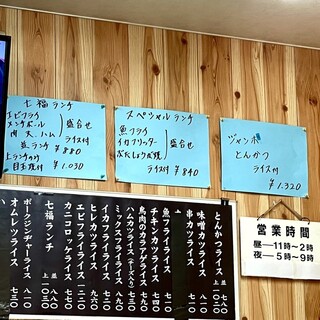 七福ランチ
エビフライ
メンチボール
肉天、ハム
盛合せ
ライス付
並ランチ ¥880
上ランチのり
目玉焼付 ¥1,030
スペシャルランチ
魚フライ
イカフリッター
ぶたしょうが焼
盛合せ
ライス付 ¥840
ジャンボ
とんかつ
ライス付
¥1,320
とんかつライス 並
上 一〇二〇
味噌カツライス
串カツライス
魚フライライス
チキンカツライス
鳥肉のカラアゲライス
ハムカツライス(チーズ入り)
ミックスフライライス
イカフライライス
ヒレカツライス
エビフライライス
カニコロッケライス
七福ランチ 並 八八〇
上 一〇三〇
ポークジンヂャーライス
オムレツライス 七三〇
営業時間
昼―11時~2時
夜―5時~9時